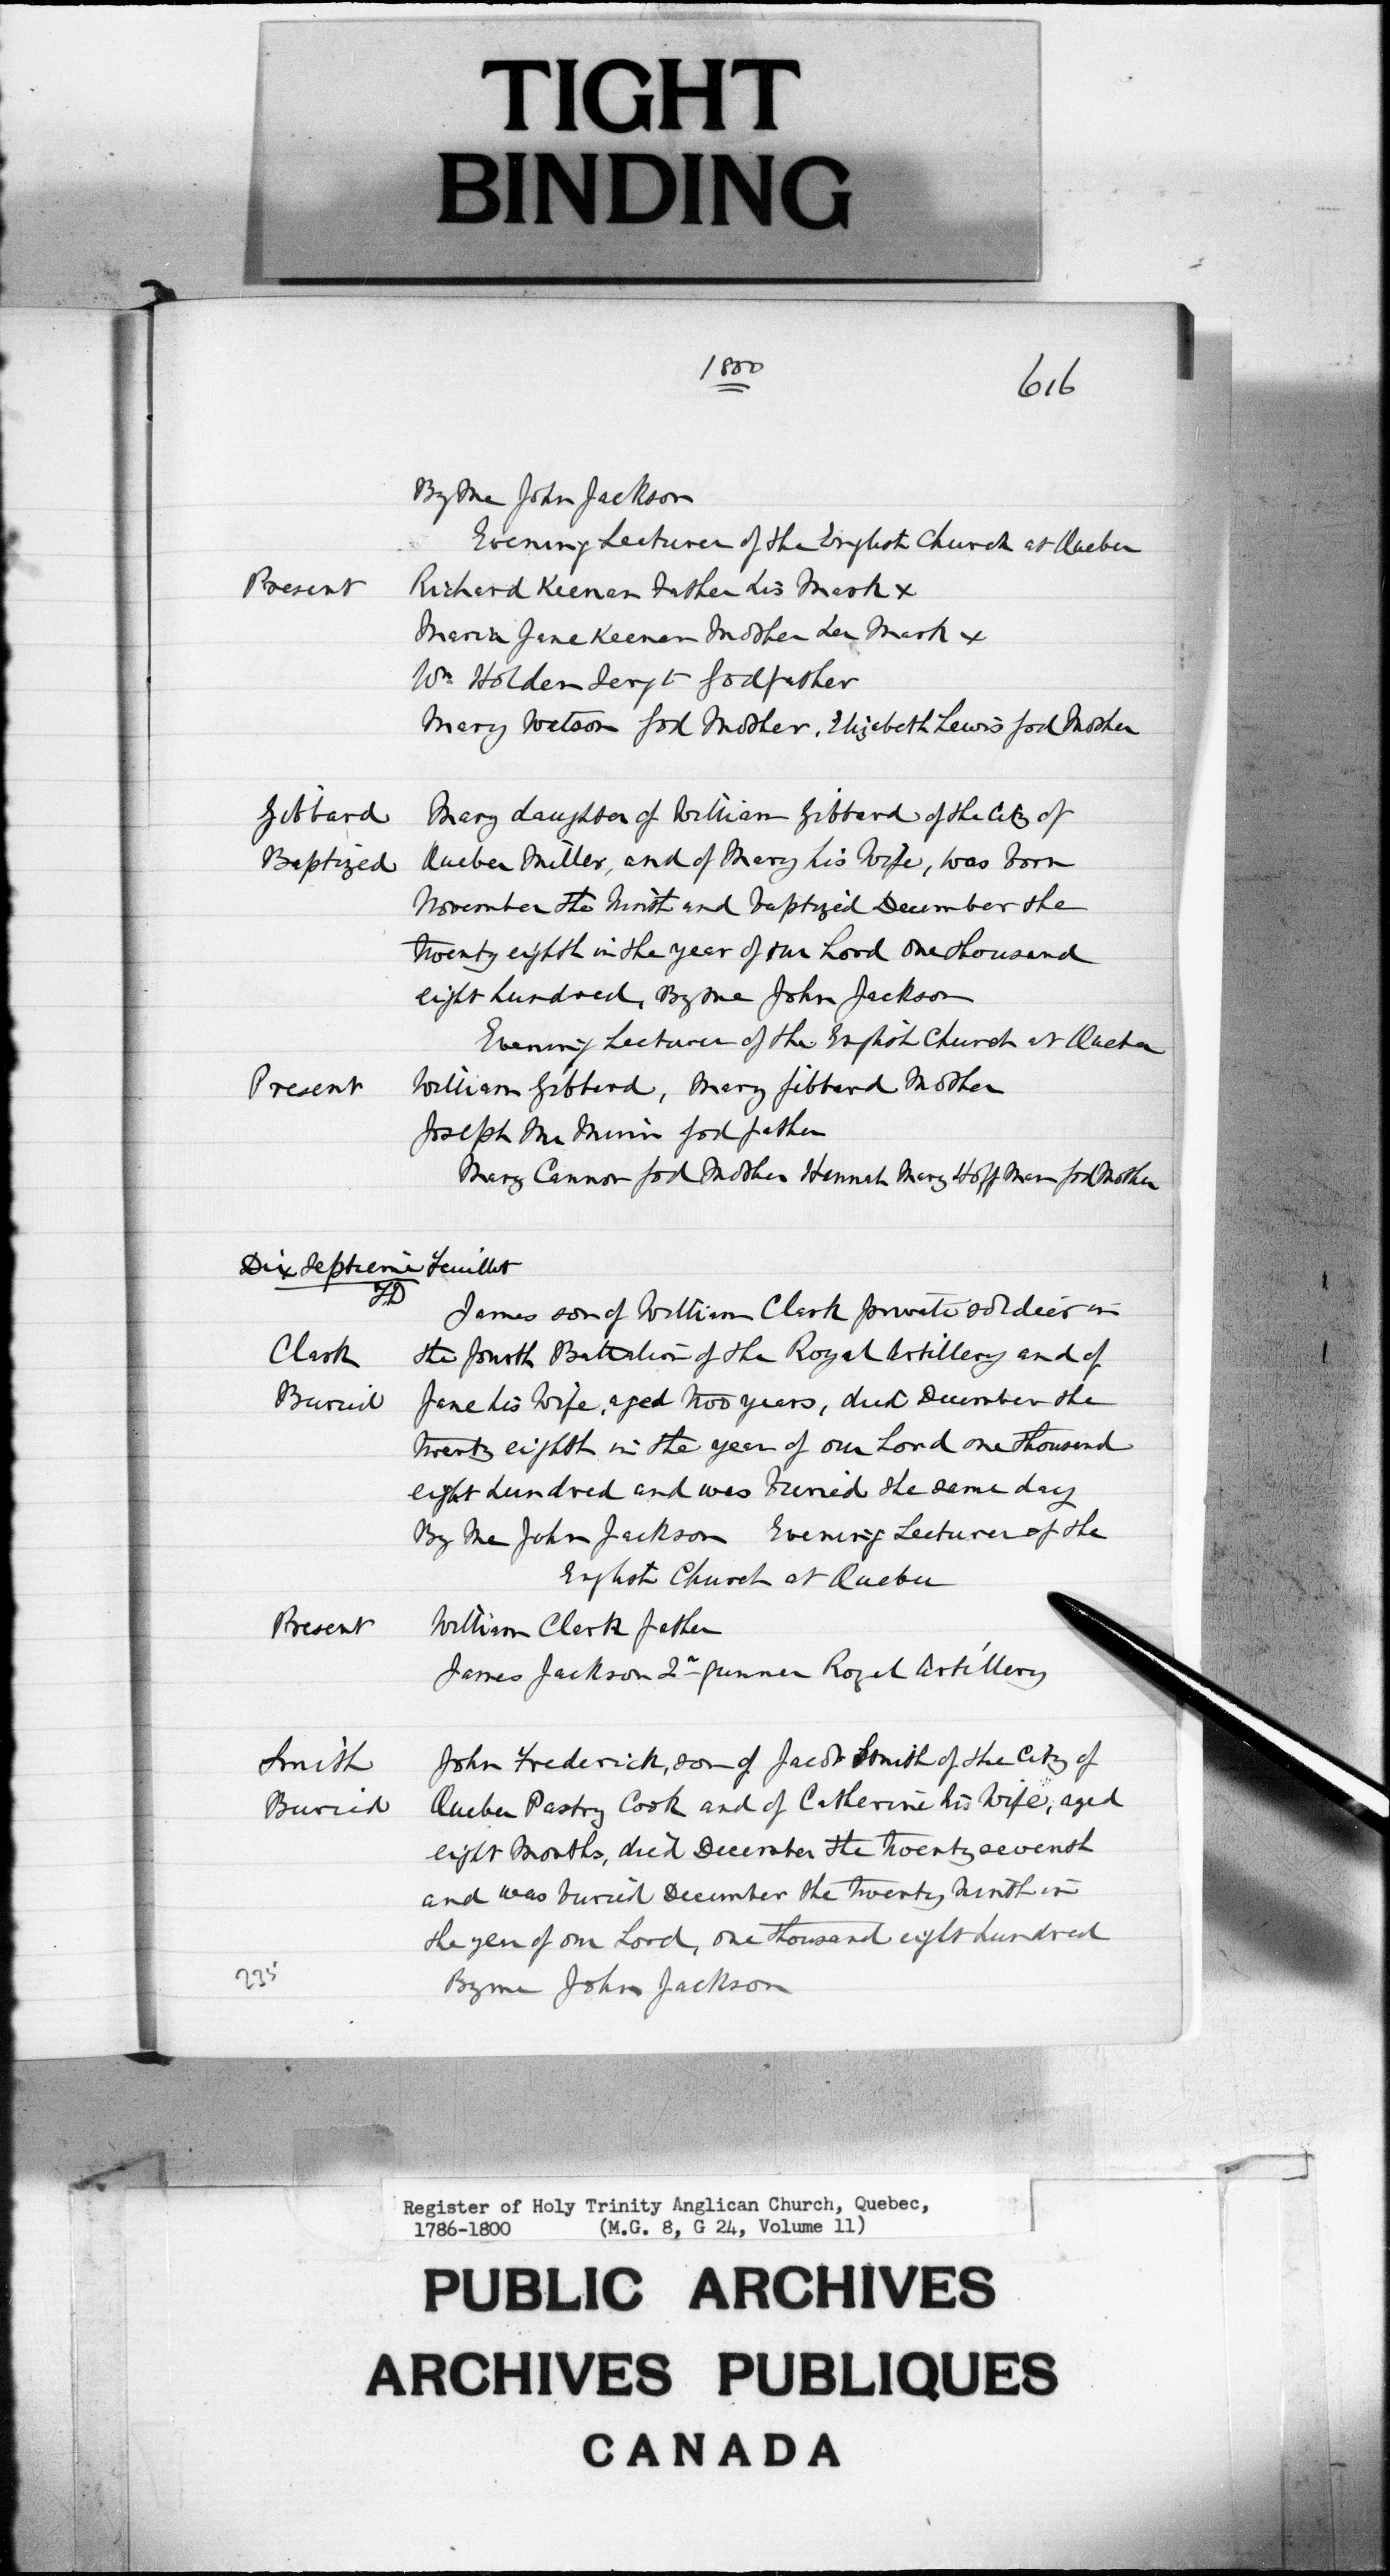 TIGHT
BINDING
1800
616
By Me John Jackson
Evening Lecturer of the English Church at Quebec
Present Richard Keenan Father his Mark x
Maria Jane Keenan Mother her Mark x
Wm Holden Sergt Godfather
Mary Watson God Mother, Elizabeth Lewis God Mother
Gibbard Mary daughter of William Gibbard of the City of
Baptized Quebec Miller, and of Mary his Wife, was born
November the Ninth and baptized December the
twenty eighth in the year of our Lord one thousand
eight hundred, By me John Jackson
Evening Lecturer of the English Church at Quebec
Present William Gibbard, Mary Gibbard Mother
Joseph Mc God father
Mary Cannon God Mother Hannah Mary Hoffman God Mother
Dix Septieme Feuillet
FD
James son of William Clark private soldier in
Clark the fourth Battalion of the Royal Artillery and of
Buried Jane his Wife, aged two years, died December the
twenty eighth in the year of our Lord one thousand
eight hundred and was buried the same day
By Me John Jackson Evening Lecturer of the
English Church at Quebec
Present William Clark father
James Jackson 2n gunner Royal Artillery
Smith John Frederick, son of Jacob Smith of the City of
Buried Quebec Pastry Cook and of Catherine his Wife, aged
eight Months, died December the twenty seventh
and was buried December the twenty Ninth in
the year of our Lord, one thousand eight hundred
235 By me John Jackson
Register of Holy Trinity Anglican Church, Quebec,
1786-1800 (M.G. 8, G 24, Volume 11)
PUBLIC ARCHIVES
ARCHIVES PUBLIQUES
CANADA